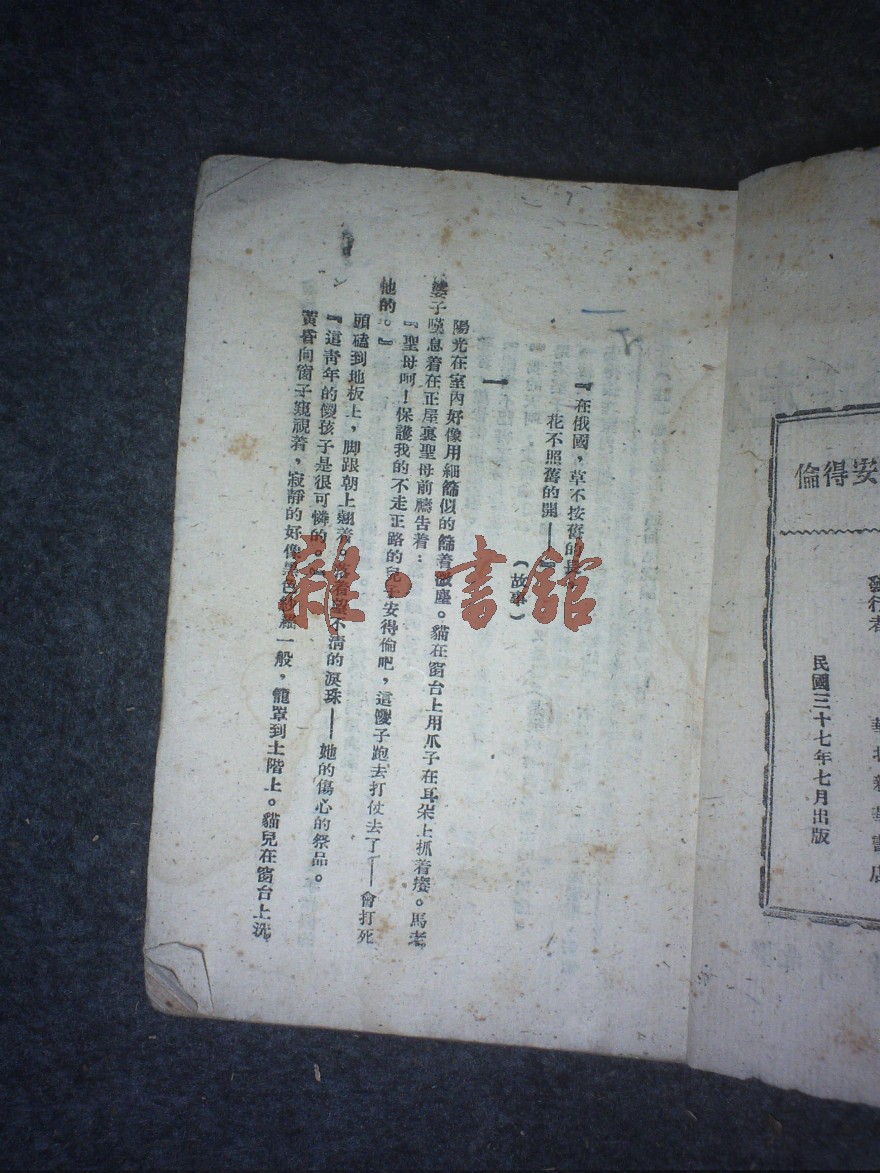 安得倫
發行者
華北新華書店
民國三十七年七月出版
『在俄國,草不按舊的長
花不照舊的開——』
(故事)
一
陽光在室內好像用細篩似的篩着微塵。貓在窗台上用爪子在耳朵上抓着癢。馬老
婆子嘆息着在正屋裏聖母前禱告着:
『聖母呵!保護我的不走正路的兒子安得倫吧,這傻子跑去打仗去了——會打死
他的。』
頭磕到地板上,脚跟朝上翹着。落着 不清的淚珠——她的傷心的祭品。
『這青年的傻孩子是很可憐的。』
黃昏向窗子窺視着,寂靜的好像黑色紗 一般,籠罩到土階上。貓兒在窗台上洗
雜·書館